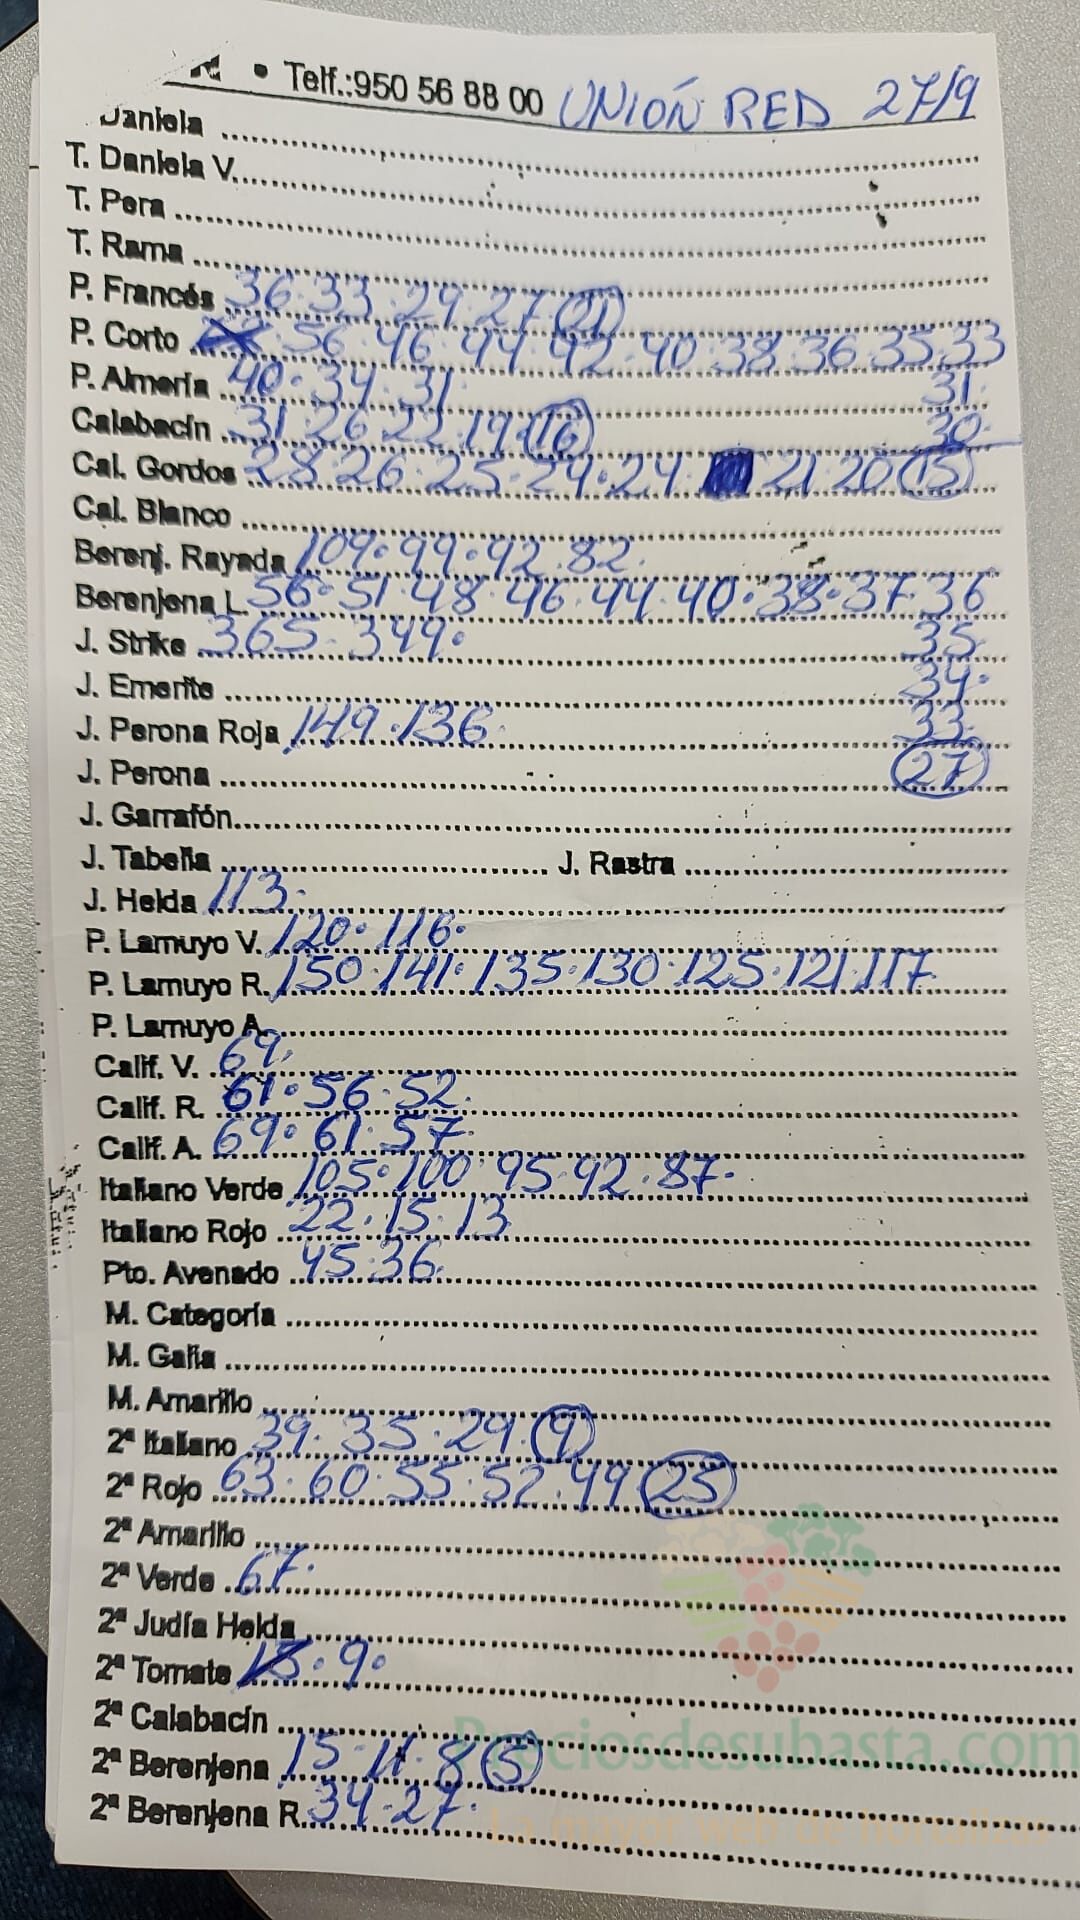 • Telf.:950 56 88 00 UNIÓN RED 27/9
Daniela
T. Daniela V.
T. Pera
T. Rama
P. Francés 36·33·29·27 (21)
P. Corto 56·46·44·42·40·38·36 35 33
P. Almería 40·34·31· 31·
Calabacín 31·26·22·19·(16) 30·
Cal. Gordos 28·26·25·24·24· 21·20 (15)
Cal. Blanco
Berenj. Rayada 109·99·92·82·
Berenjena L. 56·51·48·46·44·40·38·37·36
J. Strike 365·349· 35·
J. Emerite 34·
J. Perona Roja 149·136· 33·
J. Perona (27)
J. Garrafón
J. Tabella J. Rastra
J. Helda 113·
P. Lamuyo V. 120·116·
P. Lamuyo R. 150·141·135·130·125·121·117
P. Lamuyo A.
Calif. V. 69·
Calif. R. 61·56·52·
Calif. A. 69·61·57
Italiano Verde 105·100·95·92·87·
Italiano Rojo 22·15·13
Pto. Avenado 45·36·
M. Categoría
M. Galia
M. Amarillo
2ª Italiano 39·35·29·(9)
2ª Rojo 63·60·55·52·49 (25)
2ª Amarillo
2ª Verde 67·
2ª Judía Helda
2ª Tomate 9·
2ª Calabacín
Preciosdesubasta.com
2ª Berenjena 15·11·8 (5)
2ª Berenjena R. 34·27·
La mayor web de hortalizas